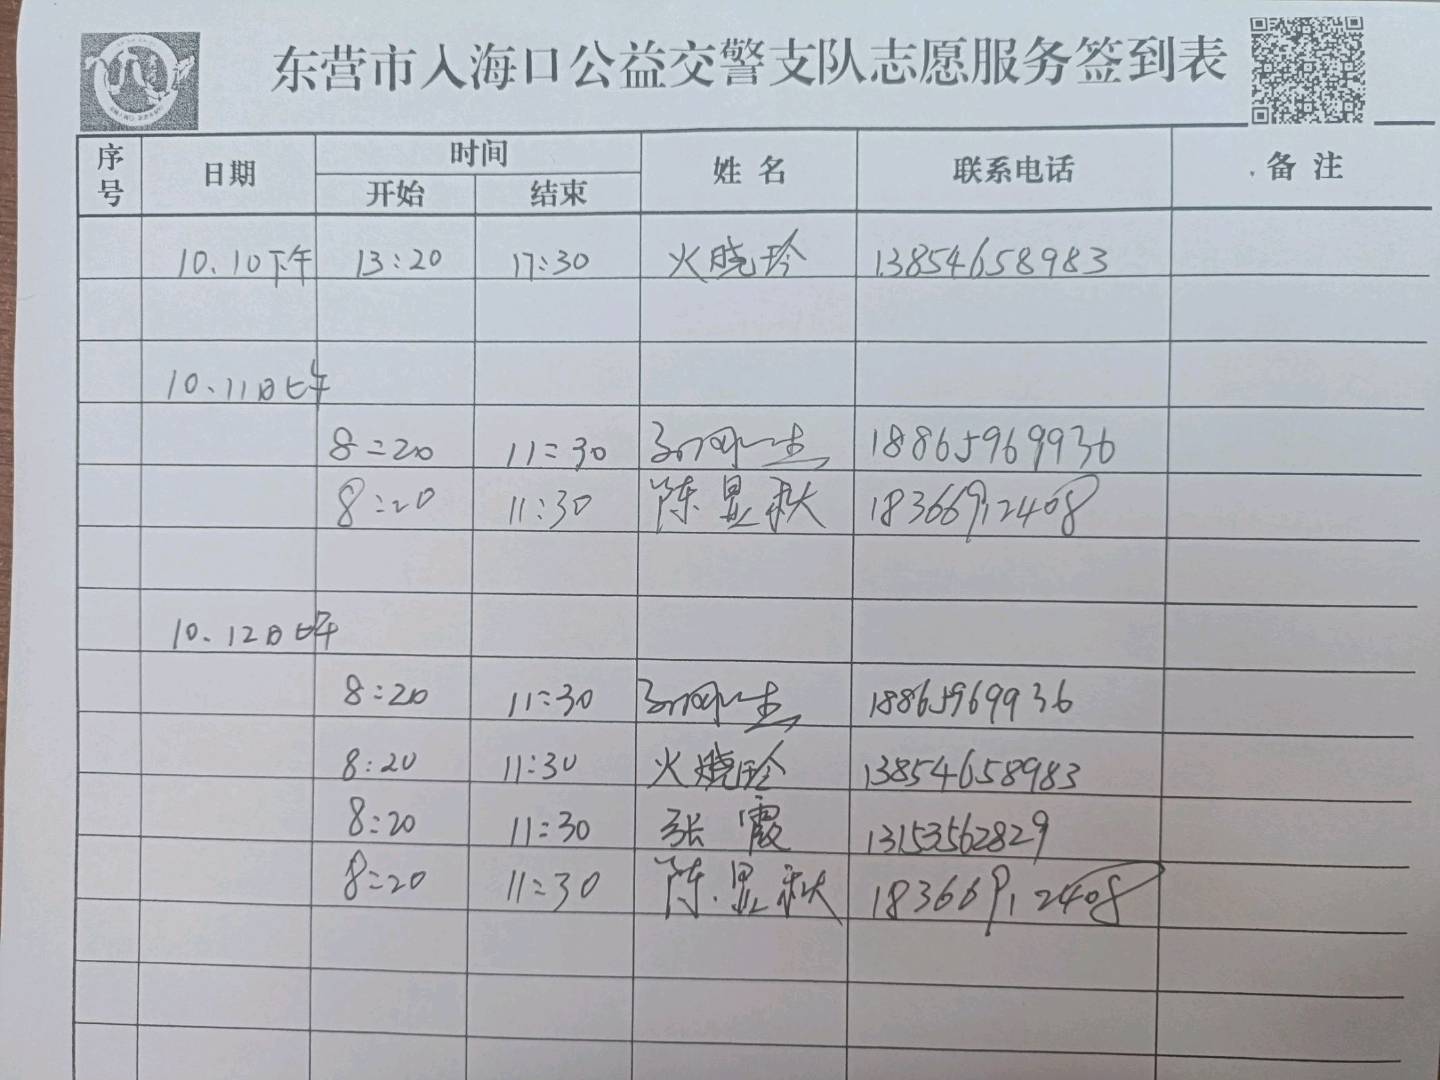 东营市入海口公益交警支队志愿服务签到表
序号 日期 时间 姓名 联系电话 备注
开始 结束
10.10下午 13:20 17:30 火晓玲 13854658983
10.11日上午
8:20 11:30 18865969936
8:20 11:30 陈显秋 18366912408
10.12日上午
8:20 11:30 18865969936
8:20 11:30 火晓玲 13854658983
8:20 11:30 张霞 13153562829
8:20 11:30 陈显秋 18366912408